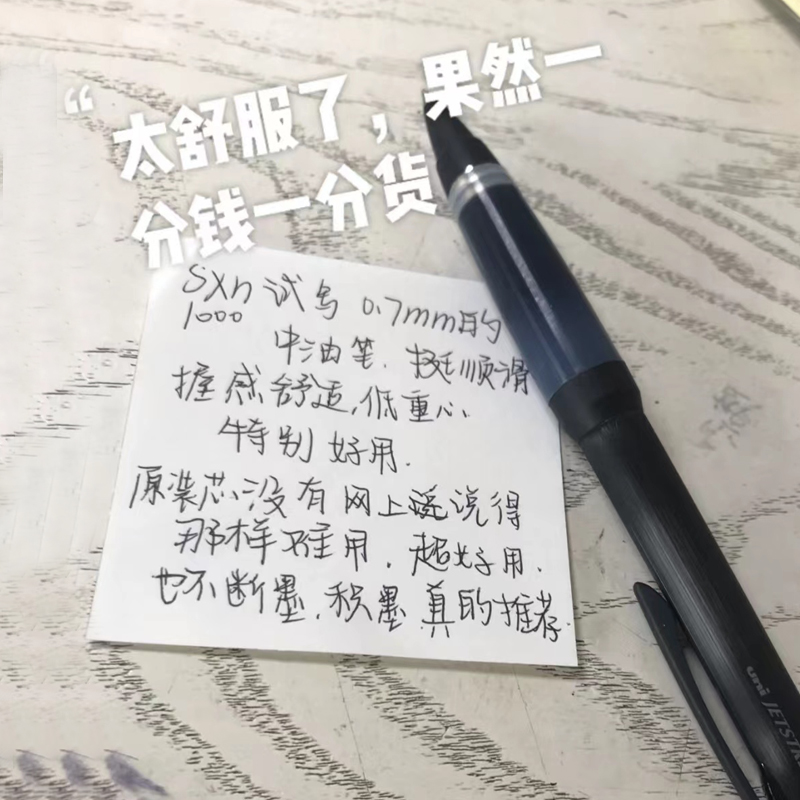 “太舒服了，果然一
分钱一分货
SXn 试写 0.7mm的
1000
中油笔.挺顺滑
握感舒适,低重心、
特别好用.
原装芯没有网上说说得
那样难用,超好用.
也不断墨,积墨真的推荐.
uni JETSTR